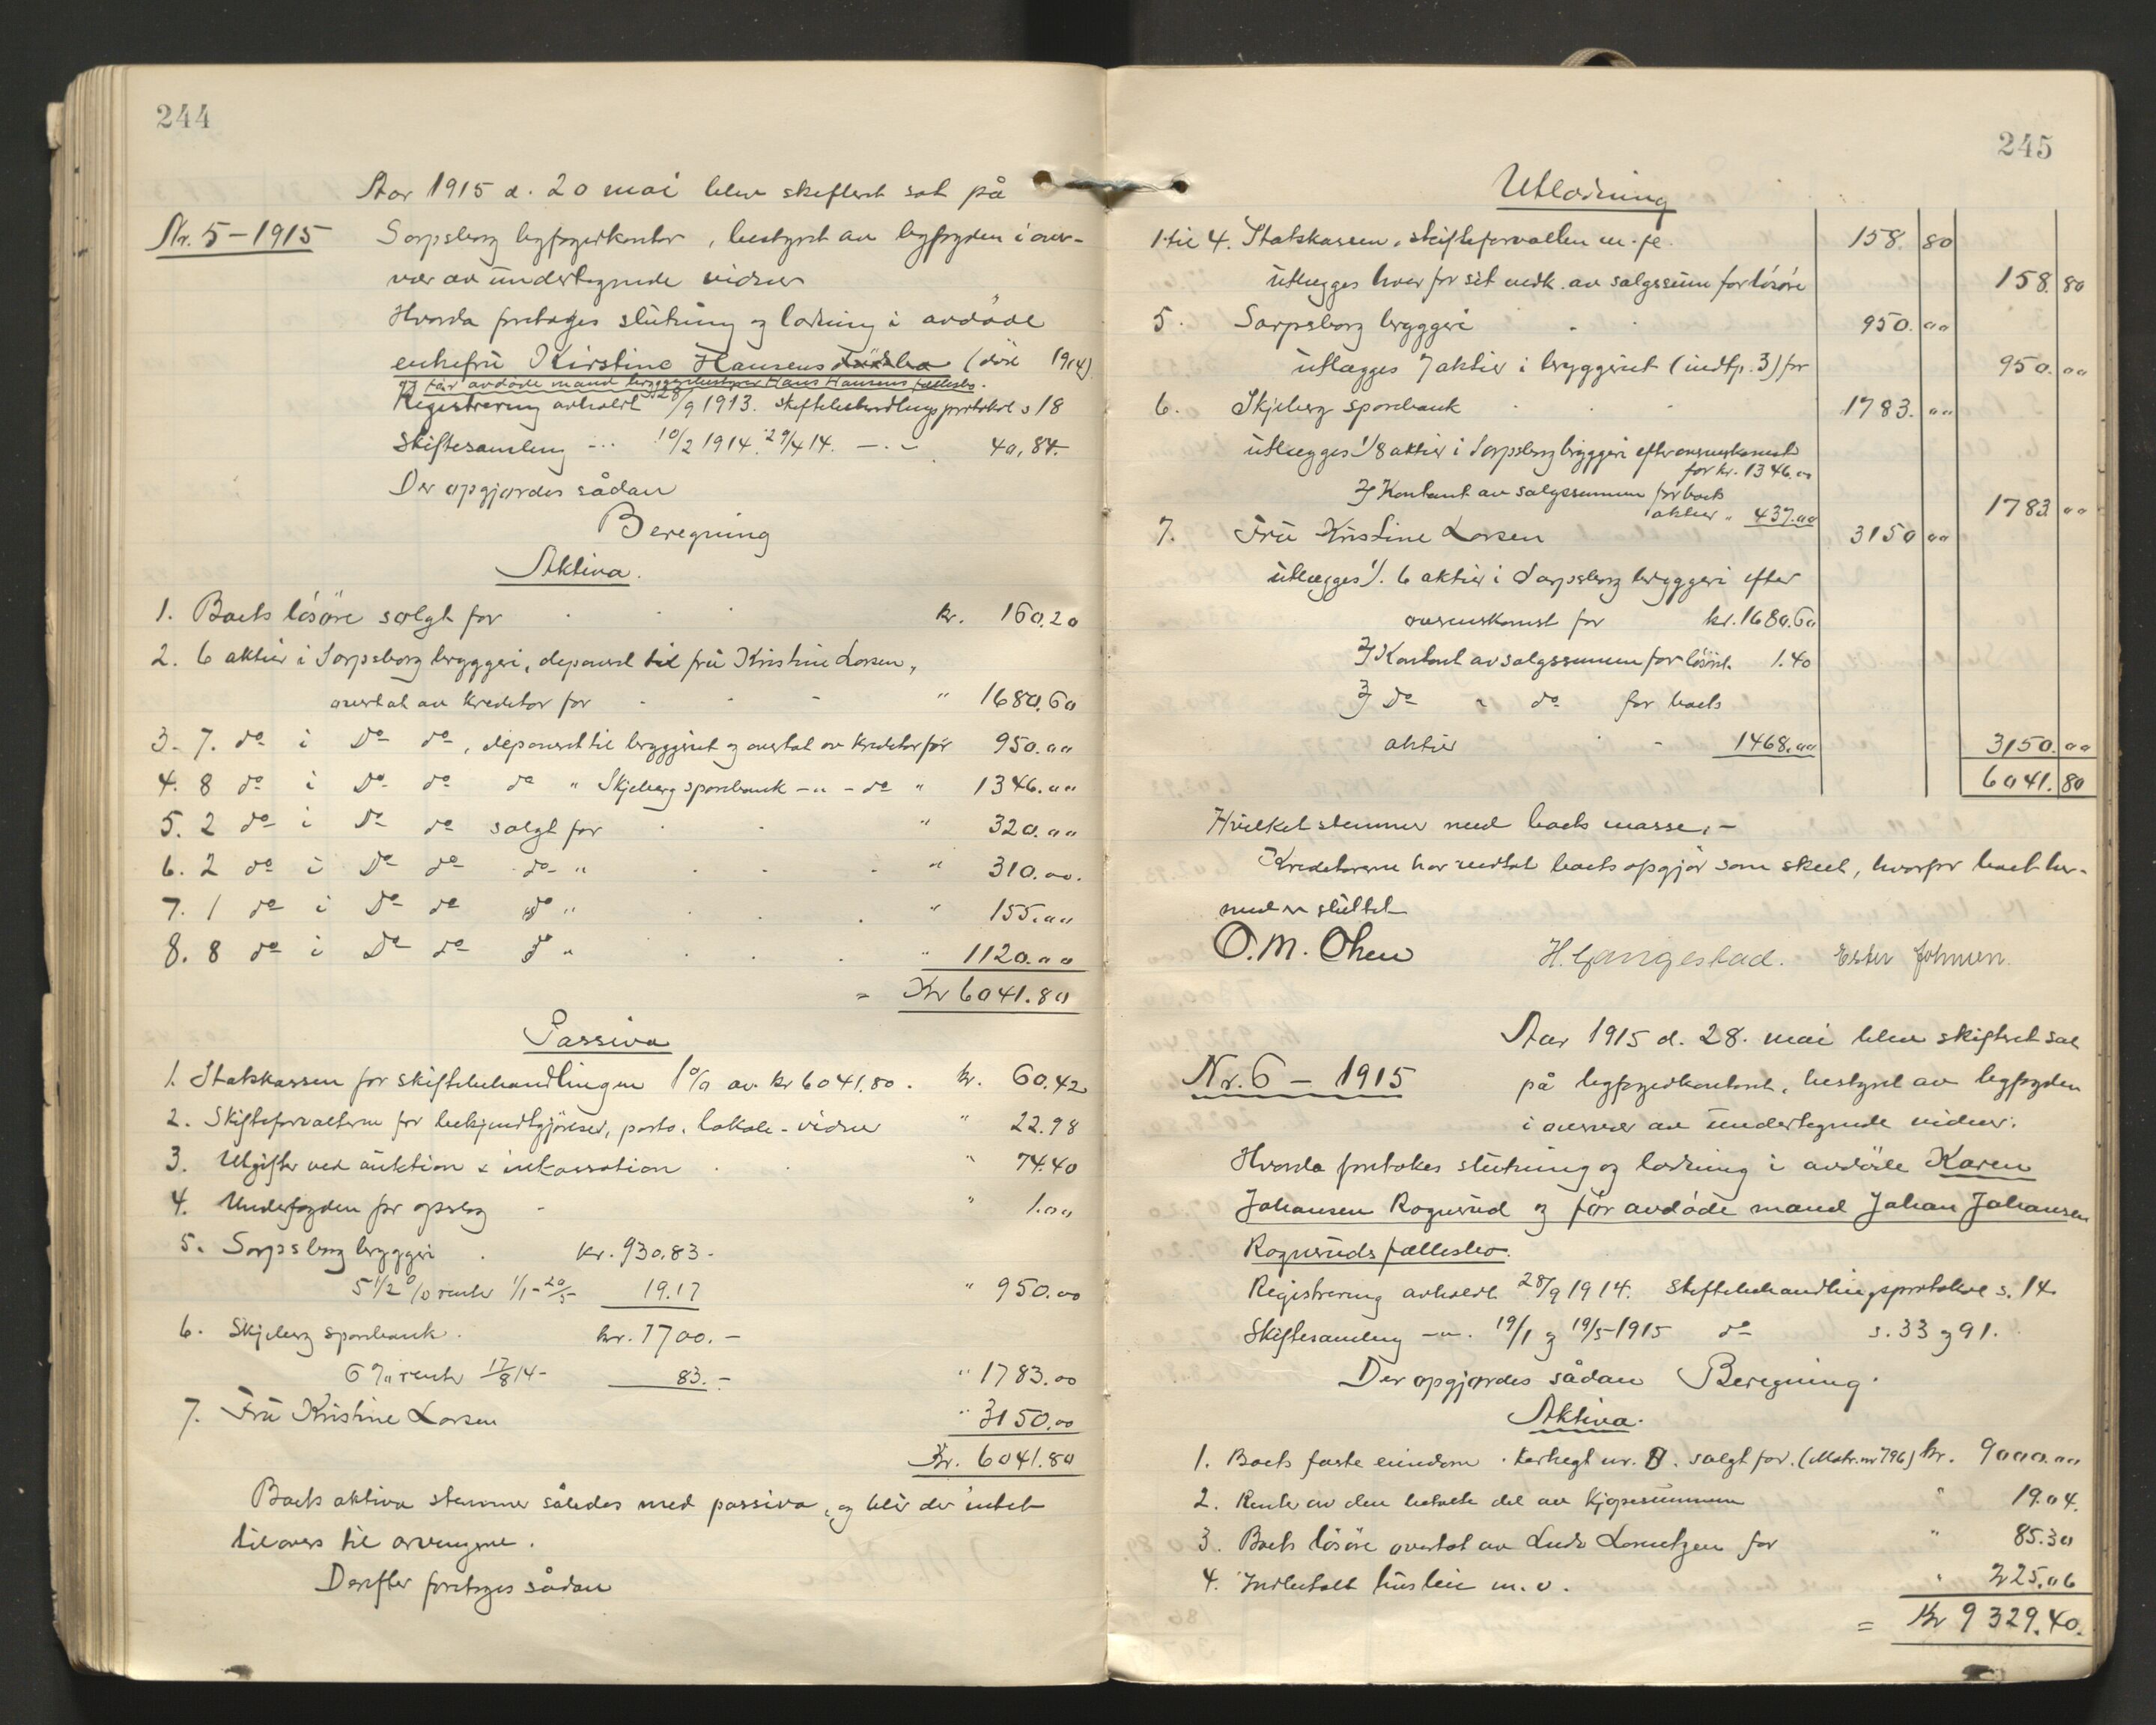 244
Aar 1915 d. 20 mai blev skifteret sat på
Nr. 5 – 1915 Sarpsborg byfogedkontor, bestyret av byfogden i over-
vær av undertegnede vidner
Hvorda foretoges slutning og lodning i avdöde
enkefru Kirstine Hansens (död 1914)
og før avdöde mand bryggeribestyrer Hans Hansens fællesbo.
Registrering avholdt 28/9 1913. skiftebehandlingsprotokol s 18
Skiftesamling -..- 10/2 1914. 29/4 14. -.- 40, 84.
Der opgjordes sådan
Beregning
Aktiva.
1. Boets lösöre solgt for kr. 160.20
2. 6 aktier i Sarpsborg bryggeri, deponert til fru Kristine Larsen,
overtat av kreditor for " 1680.60
3. 7. do i Do do, deponert til bryggeriet og overtat av kreditor for 950.00
4. 8 do i Do do do " Skjeberg sparebank -"- do " 1346.00
5. 2 do i Do do solgt for " 320.00
6. 2 do i Do do do " " 310.00.
7. 1 do i Do do do " " 155.00
8. 8 do i Do do do " " 1120.00
= Kr 6041.80
Passiva
1. Statskassen for skiftebehandlingen 1% av kr 6041.80. kr. 60.42
2. Skifteforvalteren for bekjendtgjörelser, porto, lokale - vidner " 22.98
3. Utgifter ved auktion & inkassation " 74.40
4. Underfogden for opslag " 1.00
5. Sarpsborg bryggeri kr. 930.83.
5 1/2 % renter 1/1 - 20/5 - 19.17 " 950.00
6. Skjeberg sparebank. kr. 1700.-
6 % renter 17/8 14 - 83.- " 1783.00
7. Fru Kristine Larsen " 3150.00
Kr. 6041.80
Boets aktiva stemmer således med passiva, og blir der intet
tilovers til arvingerne.
Derefter foretoges sådan
245
Utlodning
1 til 4. Statskassen, skifteforvalteren m. fl. 158. 80
utlægges hver for sit vedk. av salgssum for lösöre 158. 80
5. Sarpsborg bryggeri 950. 00
utlægges 7 aktier i bryggeriet (indtp. 3) for 950. 00
6. Skjeberg sparebank 1783. 00
utlægges 1/ 8 aktier i Sarpsborg bryggeri efter overenskomst
for kr. 1346.00
2/ Kontant av salgssummen for boets
aktier " 437.00 1783 00
7. Fru Kristine Larsen 3150 00
utlægges 1/. 6 aktier i Sarpsborg bryggeri efter
overenskomst for kr. 1680.60
2/ Kontant av salgssummen for lösöret. 1.40
3/ Do " do for boets
aktier - 1468.00 3150. 00
6041. 80
Hvilket stemmer med boets masse. -
Kreditorerne har vedtat boets opgjör som skeet, hvorfor boet her-
med er sluttet
O. M. Ohen H. Gangestad. Ester Johnsen.
Aar 1915 d. 28. mai blev skifteret sat
Nr. 6 – 1915 på byfogedkontoret, bestyret av byfogden
i overvær av undertegnede vidner:
Hvorda foretokes slutning og lodning i avdöde Karen
Johansen Rognerud og før avdöde mand Johan Johansen
Rogneruds fællesbo.
Registrering avholdt 28/9 1914. skiftebehandlingsprotokol s. 14
Skiftesamling -"- 19/1 og 19/5 - 1915 do s. 33 og 91.
Der opgjordes sådan Beregning.
Aktiva.
1. Boets faste eiendom solgt for. (Matr. nr 796) kr. 9000.00
2. Renter av den betalte del av kjøpesummen " 19.04.
3. Boets lösöre overtat av Ludv Lorentzen for " 85.30
4. Indbetalt husleie m. v. " 225.06
= Kr 9329.40.